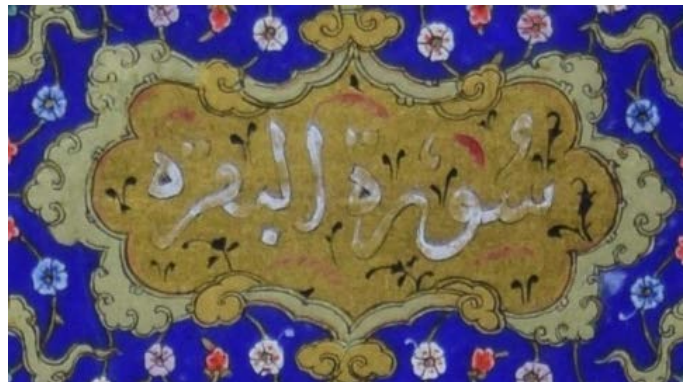 سورة البقره